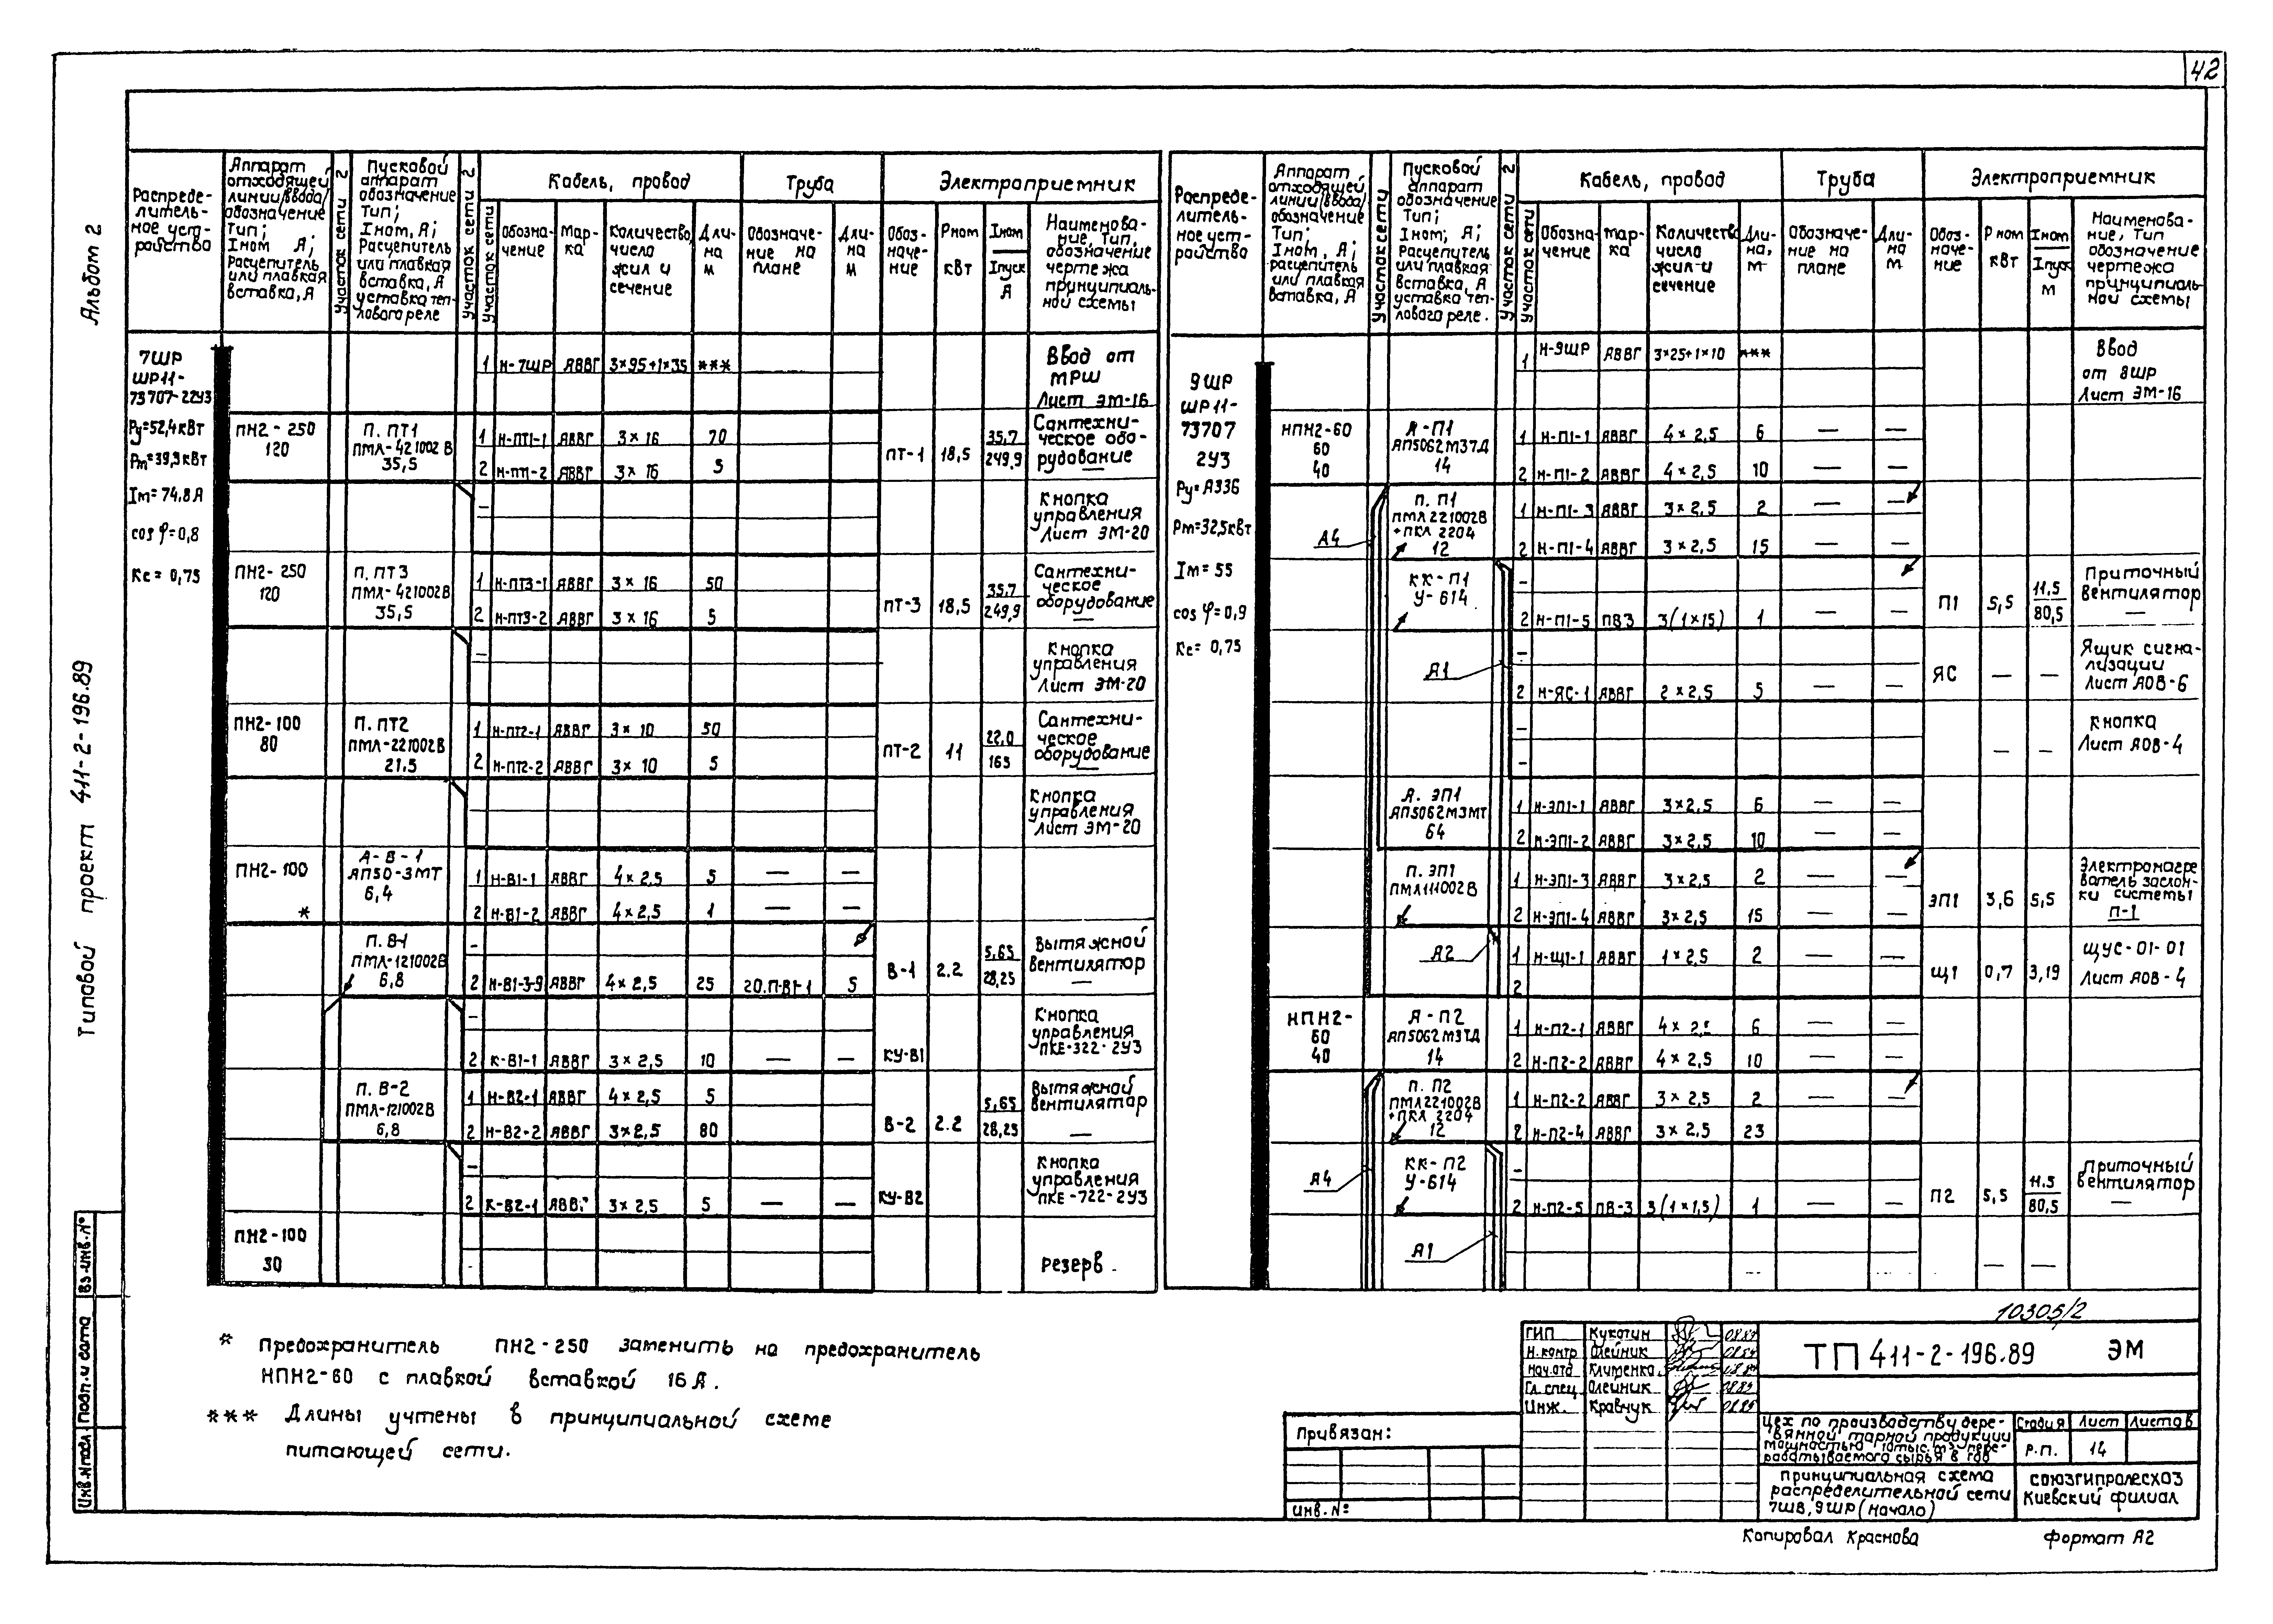 42
Альбом 2
Типовой проект 411-2-196.89
Распреде-
литель-
ное уст-
ройство
Аппарат
отходящей
линии/ввода/
обозначение
Тип;
Iном А;
Расцепитель
или плавкая
вставка, А
Участок сети 2
Пусковой
аппарат
обозначение
Тип;
Iном, А;
Расцепитель
или плавкая
вставка, А
уставка теп-
лового реле
Участок сети 2
Участок сети
Кабель, провод
Обозна-
чение
Мар-
ка
Количество,
число
жил и
сечение
Дли-
на
м
Труба
Обозначе-
ние на
плане
Дли-
на
м
Электроприемник
Обоз-
наче-
ние
Рном
кВт
Iном
Iпуск
А
Наименова-
ние, Тип,
обозначение
чертежа
принципиаль-
ной схемы
7ШР
ШР11-
73707-22У3
Ру=52,4кВт
Рм=39,3кВт
Iм=74,8А
cos φ=0,8
Кс=0,75
1 Н-7ШР АВВГ 3×95+1×35 ***
Ввод от
МРШ
Лист ЭМ-16
ПН2-250
120
П. ПТ1
ПМЛ-421002В
35,5
1 Н-ПТ1-1 АВВГ 3×16 70
2 Н-ПТ1-2 АВВГ 3×16 5
ПТ-1 18,5 35,7
249,9
Сантехни-
ческое обо-
рудование
—
Кнопка
управления
Лист ЭМ-20
ПН2-250
120
П. ПТ3
ПМЛ-421002В
35,5
1 Н-ПТ3-1 АВВГ 3×16 50
2 Н-ПТ3-2 АВВГ 3×16 5
ПТ-3 18,5 35.7
249,9
Сантехни-
ческое
оборудование
—
Кнопка
управления
Лист ЭМ-20
ПН2-100
80
П. ПТ2
ПМЛ-221002В
21.5
1 Н-ПТ2-1 АВВГ 3×10 50
2 Н-ПТ2-2 АВВГ 3×10 5
ПТ-2 11 22,0
165
Сантехни-
ческое
оборудование
—
Кнопка
управления
Лист ЭМ-20
ПН2-100
*
А-В-1
АП50-3МТ
6,4
1 Н-В1-1 АВВГ 4×2,5 5 — —
2 Н-В1-2 АВВГ 4×2,5 1 — —
П. В-1
ПМЛ-121002В
6,8
2 Н-В1-3-9 АВВГ 4×2,5 25 20.П-В1-1 5
В-1 2.2 5,65
28,25
Вытяжной
вентилятор
—
2 К-В1-1 АВВГ 3×2,5 10 — —
КУ-В1
Кнопка
управления
ПКЕ-322-2У3
П. В-2
ПМЛ-121002В
6,8
1 Н-В2-1 АВВГ 4×2,5 5
2 Н-В2-2 АВВГ 3×2,5 80
В-2 2.2 5,65
28,25
Вытяжной
вентилятор
—
2 К-В2-1 АВВГ 3×2,5 5 — —
КУ-В2
Кнопка
управления
ПКЕ-722-2У3
ПН2-100
30
резерв
Распреде-
литель-
ное уст-
ройство
Аппарат
отходящей
линии/ввода/
обозначение
Тип;
Iном, А;
расцепитель
или плавкая
вставка, А
Участок сети
Пусковой
аппарат
обозначение
Тип;
Iном; А;
Расцепитель
или плавкая
вставка, А
уставка теп-
лового реле.
Участок сети 2
Участок сети
Кабель, провод
Обозна-
чение
мар-
ка
Количество
число
жил и
сечение
Дли-
на,
м
Труба
Обозначе-
ние на
плане
Дли-
на
м
Электроприемник
Обоз-
наче-
ние
Р ном
кВт
Iном
Iпуск
М
Наименова-
ние, Тип
обозначение
чертежа
принципиаль-
ной схемы
9ШР
ШР11-
73707
2У3
Ру=А336
Рм=32,5кВт
Iм=55
cos φ=0,9
Кс=0,75
1 Н-9ШР АВВГ 3×25+1×10 ***
Ввод
от 8ШР
Лист ЭМ-16
НПН2-60
60
40
А-П1
АП5062М3ТД
14
1 Н-П1-1 АВВГ 4×2,5 6 — —
2 Н-П1-2 АВВГ 4×2,5 10 — —
А4
П. П1
ПМЛ221002В
+ПКЛ 2204
12
1 Н-П1-3 АВВГ 3×2,5 2 — —
2 Н-П1-4 АВВГ 3×2,5 15 — —
КК-П1
У-614
2 Н-П1-5 ПВ3 3(1×15) 1 — —
П1 5,5 11,5
80,5
Приточный
вентилятор
—
А1
2 Н-ЯС-1 АВВГ 2×2,5 5 — —
ЯС — —
Ящик сигна-
лизации
Лист АОВ-6
— —
Кнопка
Лист АОВ-4
А. ЭП1
АП5062М3МТ
64
1 Н-ЭП1-1 АВВГ 3×2,5 6 — —
2 Н-ЭП1-2 АВВГ 3×2,5 10 — —
П. ЭП1
ПМЛ111002В
1 Н-ЭП1-3 АВВГ 3×2,5 2 — —
2 Н-ЭП1-4 АВВГ 3×2,5 15 — —
ЭП1 3,6 5,5
Электронагре
ватель заслон-
ки системы
П-1
А2
1 Н-Щ1-1 АВВГ 1×2,5 2 — —
2
Щ1 0,7 3,19
ЩУС-01-01
Лист АОВ-4
НПН2-
60
40
А-П2
АП5062М3ТД
14
1 Н-П2-1 АВВГ 4×2,5 6 — —
2 Н-П2-2 АВВГ 4×2,5 10 — —
А4
П. П2
ПМЛ221002В
+ПКЛ 2204
12
1 Н-П2-2 АВВГ 3×2,5 2 — —
2 Н-П2-4 АВВГ 3×2,5 23
КК-П2
У-614
2 Н-П2-5 ПВ-3 3(1×1,5) 1 — —
П2 5,5 11.5
80,5
Приточный
вентилятор
—
А1
— —
* Предохранитель ПН2-250 заменить на предохранитель
НПН2-60 с плавкой вставкой 16А.
*** Длины учтены в принципиальной схеме
питающей сети.
10305/2
ГИП Кукотин 08.89
Н.контр Олейник 08.89
Нач.отд Клименко 08.89
Гл.спец Олейник 08.89
Инж. Кравчук 08.89
ТП 411-2-196.89 ЭМ
Цех по производству дере-
вянной тарной продукции
мощностью 10тыс.м3 пере-
рабатываемого сырья в год
Стадия Лист Листов
Р.П. 14
принципиальная схема
распределительной сети
7ШВ, 9ШР (начало)
СОЮЗГИПРОЛЕСХОЗ
Киевский филиал
Привязан:
Инв.№:
Инв.№подл. Подп.и дата Вз.инв.№
Копировал Краснова
Формат А2